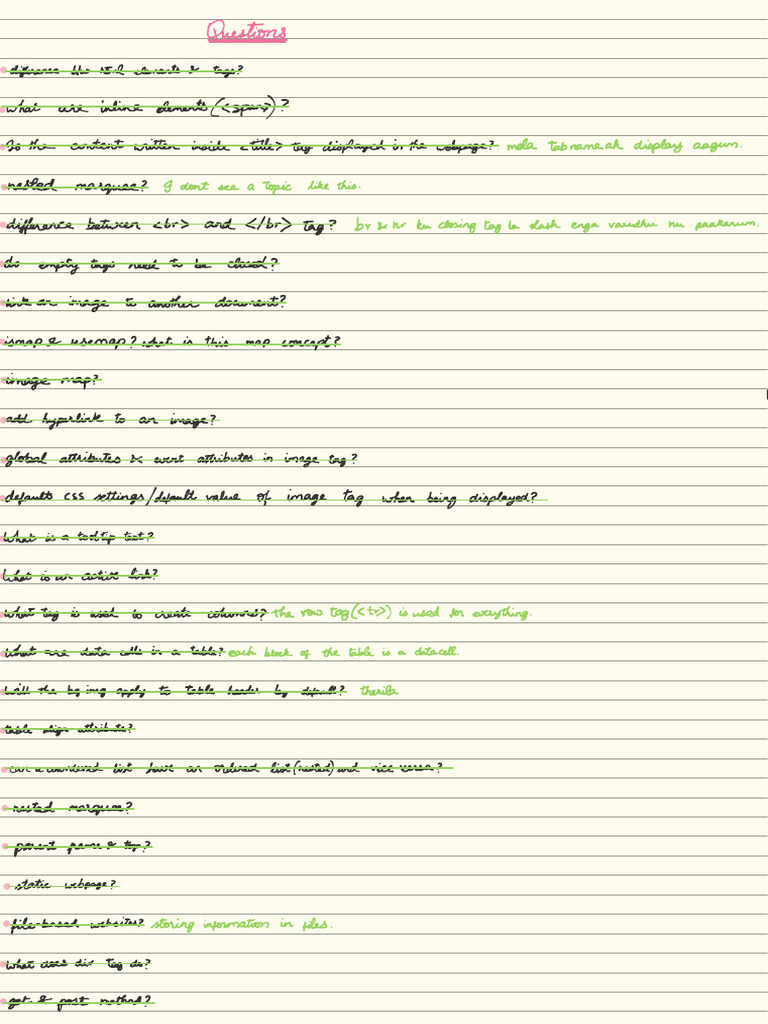 Questions
difference btw html elements & tags?
what are inline elements(<span>)?
Is the content written inside <title> tag displayed in the webpage? mela tabnameah display aagum.
nested marquee? I dont see a topic like this.
difference between <br> and </br> tag? br & hr ku closing tag la slash enga varudhu nu paakanum.
do empty tags need to be closed?
link an image to another document?
ismap & usemap? what is this map concept?
image map?
add hyperlink to an image?
global attributes & event attributes in image tag?
default CSS settings/default value of image tag when being displayed?
What is a tooltip text?
What is an active link?
What tag is used to create columns? the row tag(<tr>) is used for everything.
What are data cells in a table? each block of the table is a datacell.
Will the bg img apply to table header by default? therila
table align attribute?
can a unordered list have an ordered list(nested) and vice versa?
nested marquee?
parent frame & top?
static webpage?
file-based websites? storing information in files.
what does div tag do?
get & post method?